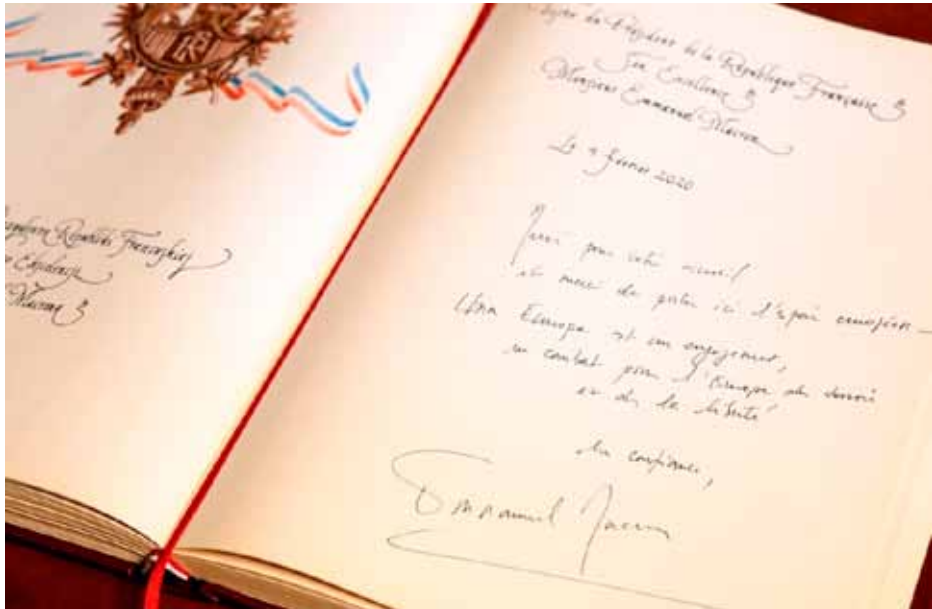 RF
Republiki Francuskiej
Ekscelencji
Macron
du Président de la République Française
Son Excellence
Monsieur Emmanuel Macron
Le 4 février 2020
Merci pour votre accueil
et merci de porter ici l'espoir européen –
Una Europa est un engagement,
un combat pour l'Europe du savoir
et de la liberté
En confiance,
Emmanuel Macron